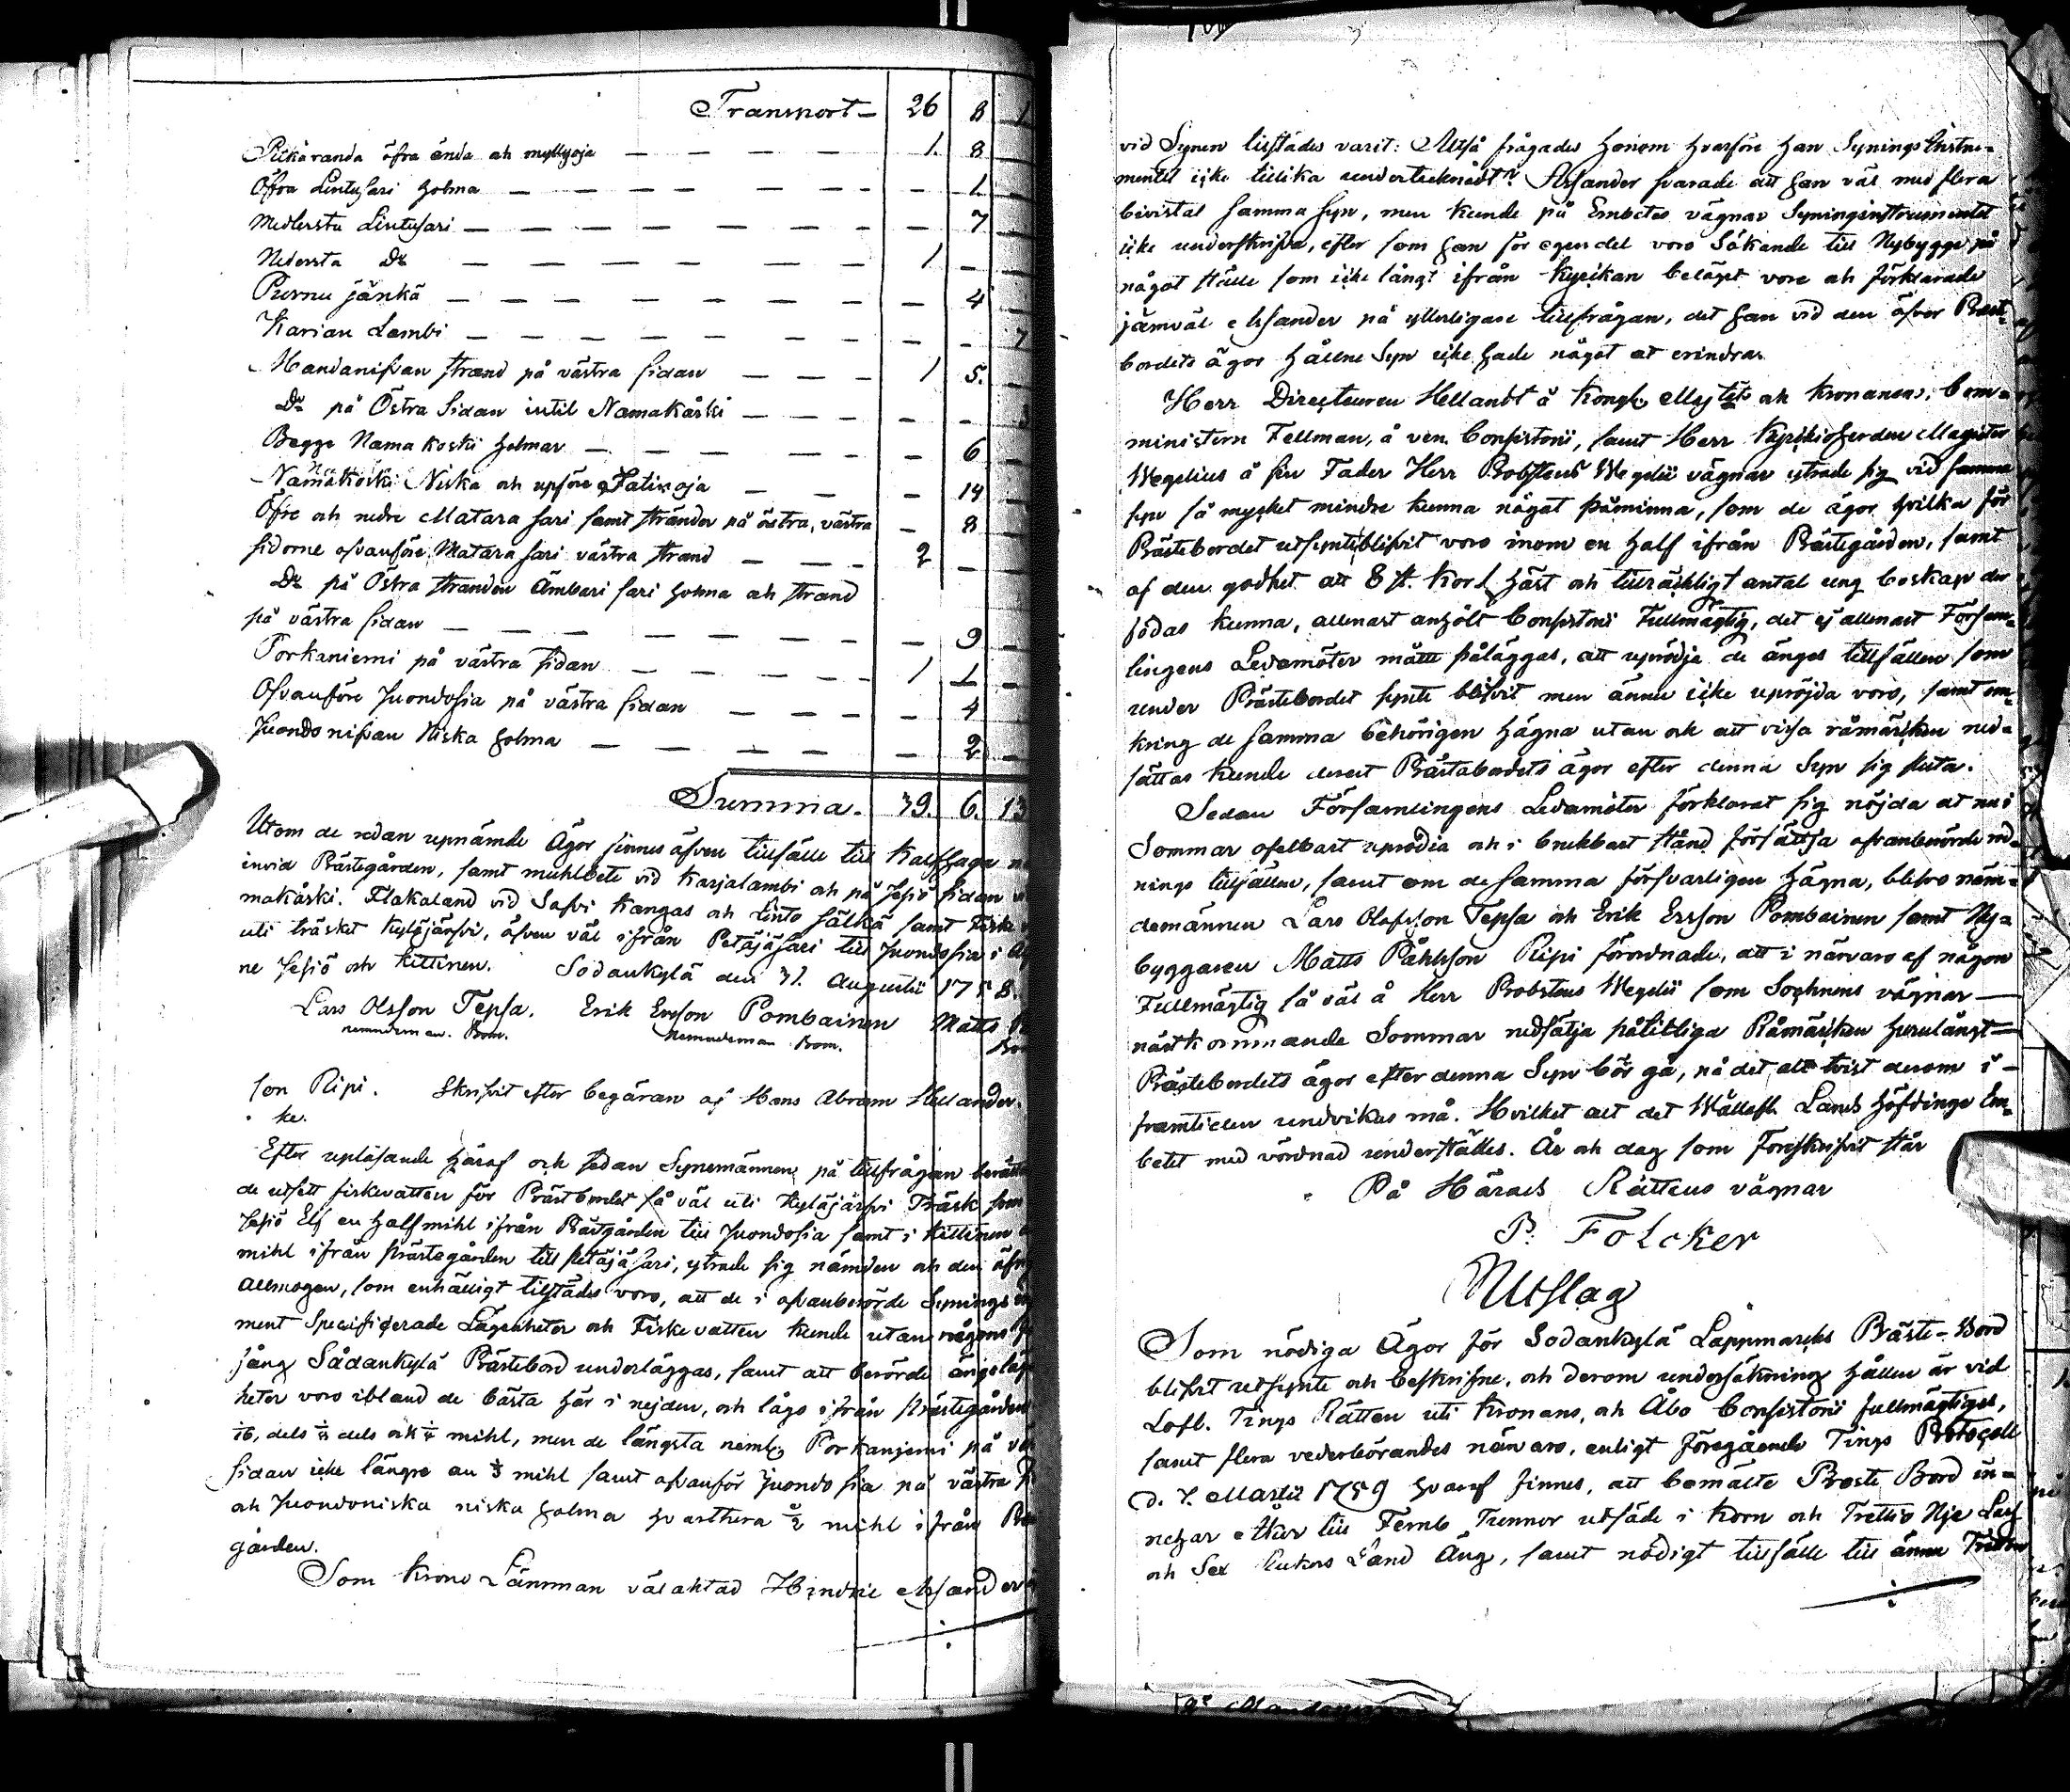 Transport — 26 8 1
Pitkäranda öfra ända ah myllyoja — 1. 8
Öfra Lintusari holma — — 1 —
Medlersta Lintusari — — 7 —
Nedersta D:o — 1 — —
Purnu jänkä — — 4 —
Karian Lambi — — — 7
Mandanifvan strand på västra sidan — 1 5. —
D:o på Östra Sidan intil Namakåski — — —
Begge Nama koski holmar — — 6 —
Namakoski Niska och upföre Hatisoja — — 14 —
Öfre och nedre Matara sari samt stränder på östra, västra — 8 —
sidorne ofvanföre Matara sari västra strand — 2 — —
D:o på Östra stranden Ämbari sari holma ah strand
på västra sidan — — 9 —
Porkaniemi på västra sidan — 1 1 —
Ofvanföre Juondosia på västra sidan — — 4 —
Juondonifvan Niska holma — — 2 —
Summa. 39. 6. 13
Utom de redan upnämde Ägor finnes äfven tillfälle till Kalfhaga
invid Prästegården, samt muhlbete vid Karjalambi ah på Jesiö sidan
makåski. Flakaland vid Safvi Kangas och Linto Sälkä samt Fiske
uti träsket Kyläjärfvi, äfven väl ifrån Petäjäsari till Juondosia i
ne Jesiö och Kittinen. Sodankylä den 31. Augustii 1758.
Lars Olsson Tepsa. Erik Ersson Pombainen Matts
nemndeman. Bom. Nemndeman Bom.
son Ripi. Skrifvit efter begäran af Hans Abram Hellander.
ke.
Efter upläsande häraf och sedan Synemännene på tillfrågan berätta
de utsett fiskevatten för Prästbordet så väl uti Kyläjärfvi Träsk som
Jesiö Elf en half mihl ifrån Prästgården till Juondosia samt i Kittinen
mihl ifrån prästegården till Petäjäsari, ytrade sig nämden och den öfrig
Allmogen, som enhälligt tillstädes voro, att de i ofvanberörde Synings
ment Specificerade Lägenheter och Fiskevatten kunde utan någons
fång Sådankylä Prästebord underläggas, samt att berörde ängeslägen
heter voro ibland de bästa här i nejden, och lågo ifrån prästegården
1/16, dels 1/8 dels och 1/4 mihl, men de längsta neml. Porkaniemi på
sidan icke längre än 1/3 mihl samt ofvanför Juondosia på västra
ah Juondoniska niska holma hvarthera 1/2 mihl ifrån
gården.
Som Krono Länman välaktad Hindric Assander
vid Synen tillstädes varit: Altså frågades honom hvarföre han Synings Instru-
mentet icke tillika undertecknadt? Assander svarade att han väl med flera
bivistat samma syn, men kunde på Embetes vägnar Syningsinstrumentet
icke underskrifva, efter som han för egen del voro Sökande till Nybygge på
något ställe som icke långt ifrån Kyrkan belägit vore ah förklarade
jämväl Assander på ytterligare tillfrågan, det han vid den öfver Präst-
bordets ägor hållne Syn icke hade något at erindra.
Herr Directeuren Hellandt å Kongl. May:tts ah Kronanes, Com-
ministern Fellman, å ven. Consistorii, samt Herr Kyrkioherden Magister
Wegelius å sin Fader Herr Probstens Wegelii vägnar ytrade sig vid samma
syn så mycket mindre kunna något påminna, som de ägor hvilka för
Prästebordet utsynte blifvit voro inom en half ifrån Prästegården, samt
af den godhet att 8 st. Kor 1 häst och tillräckligt antal ung boskap der
födas kunna, allenast anhölt Consistorii Fullmägtig, det ej allenast Försam-
lingens Ledamöter måtte påläggas, att uprödja de änges tillfällen som
under Prästebordet synte blifvit men ännu icke upröjda voro, samt om-
kring de samma behörigen hägna utan ock att vissa råmärken ned-
sättas kunde derest Prästabordets ägor efter denna Syn sig sluta.
Sedan Församlingens Ledamöter förklarat sig nöjda at nu i
Sommar ofelbart uprödia och i brukbart stånd försättja ofvanberörde röd-
nings tillfällen, samt om de samma försvarligen hägna, blefvo näm-
demännen Lars Olofsson Tepsa och Erik Ersson Pombainen samt Ny-
byggaren Matts Påhlsson Ripi förordnade, att i närvaro af någon
Fullmägtig så väl å Herr Probstens Wegelii som Sochnens vägnar —
nästkommande Sommar nedsätja pålitliga Råmärken hurulångt —
Prästebordets ägor efter denna Syn bör gå, på det att tvist derom i
framtiden undvikas må. Hvilket alt det Wällofl. Lands Höfdinge Em-
betet med vördnad underställes. År och dag som Förskrifvit står
På Härads Rättens vägnar
P. Folcker
Utslag
Som nödiga Ägor för Sodankylä Lappmarcks Präste-Bord
blifvit utsynte och beskrifne, och derom undersökning hållen är vid
Lofl. Tings Rätten uti Kronans, och Åbo Consistorii fullmägtiges,
samt flera vederbörandes närvaro, enligt föregående Tings Protocoll
d. 7. Martii 1759 hvaraf finnes, att bemälte Preste Bord in-
nehar Åker till Femb Tunnor utsäde i Korn och Trettio Nije Lass
och Sex Rukors Land Äng, samt nödigt tillfälle till ännu